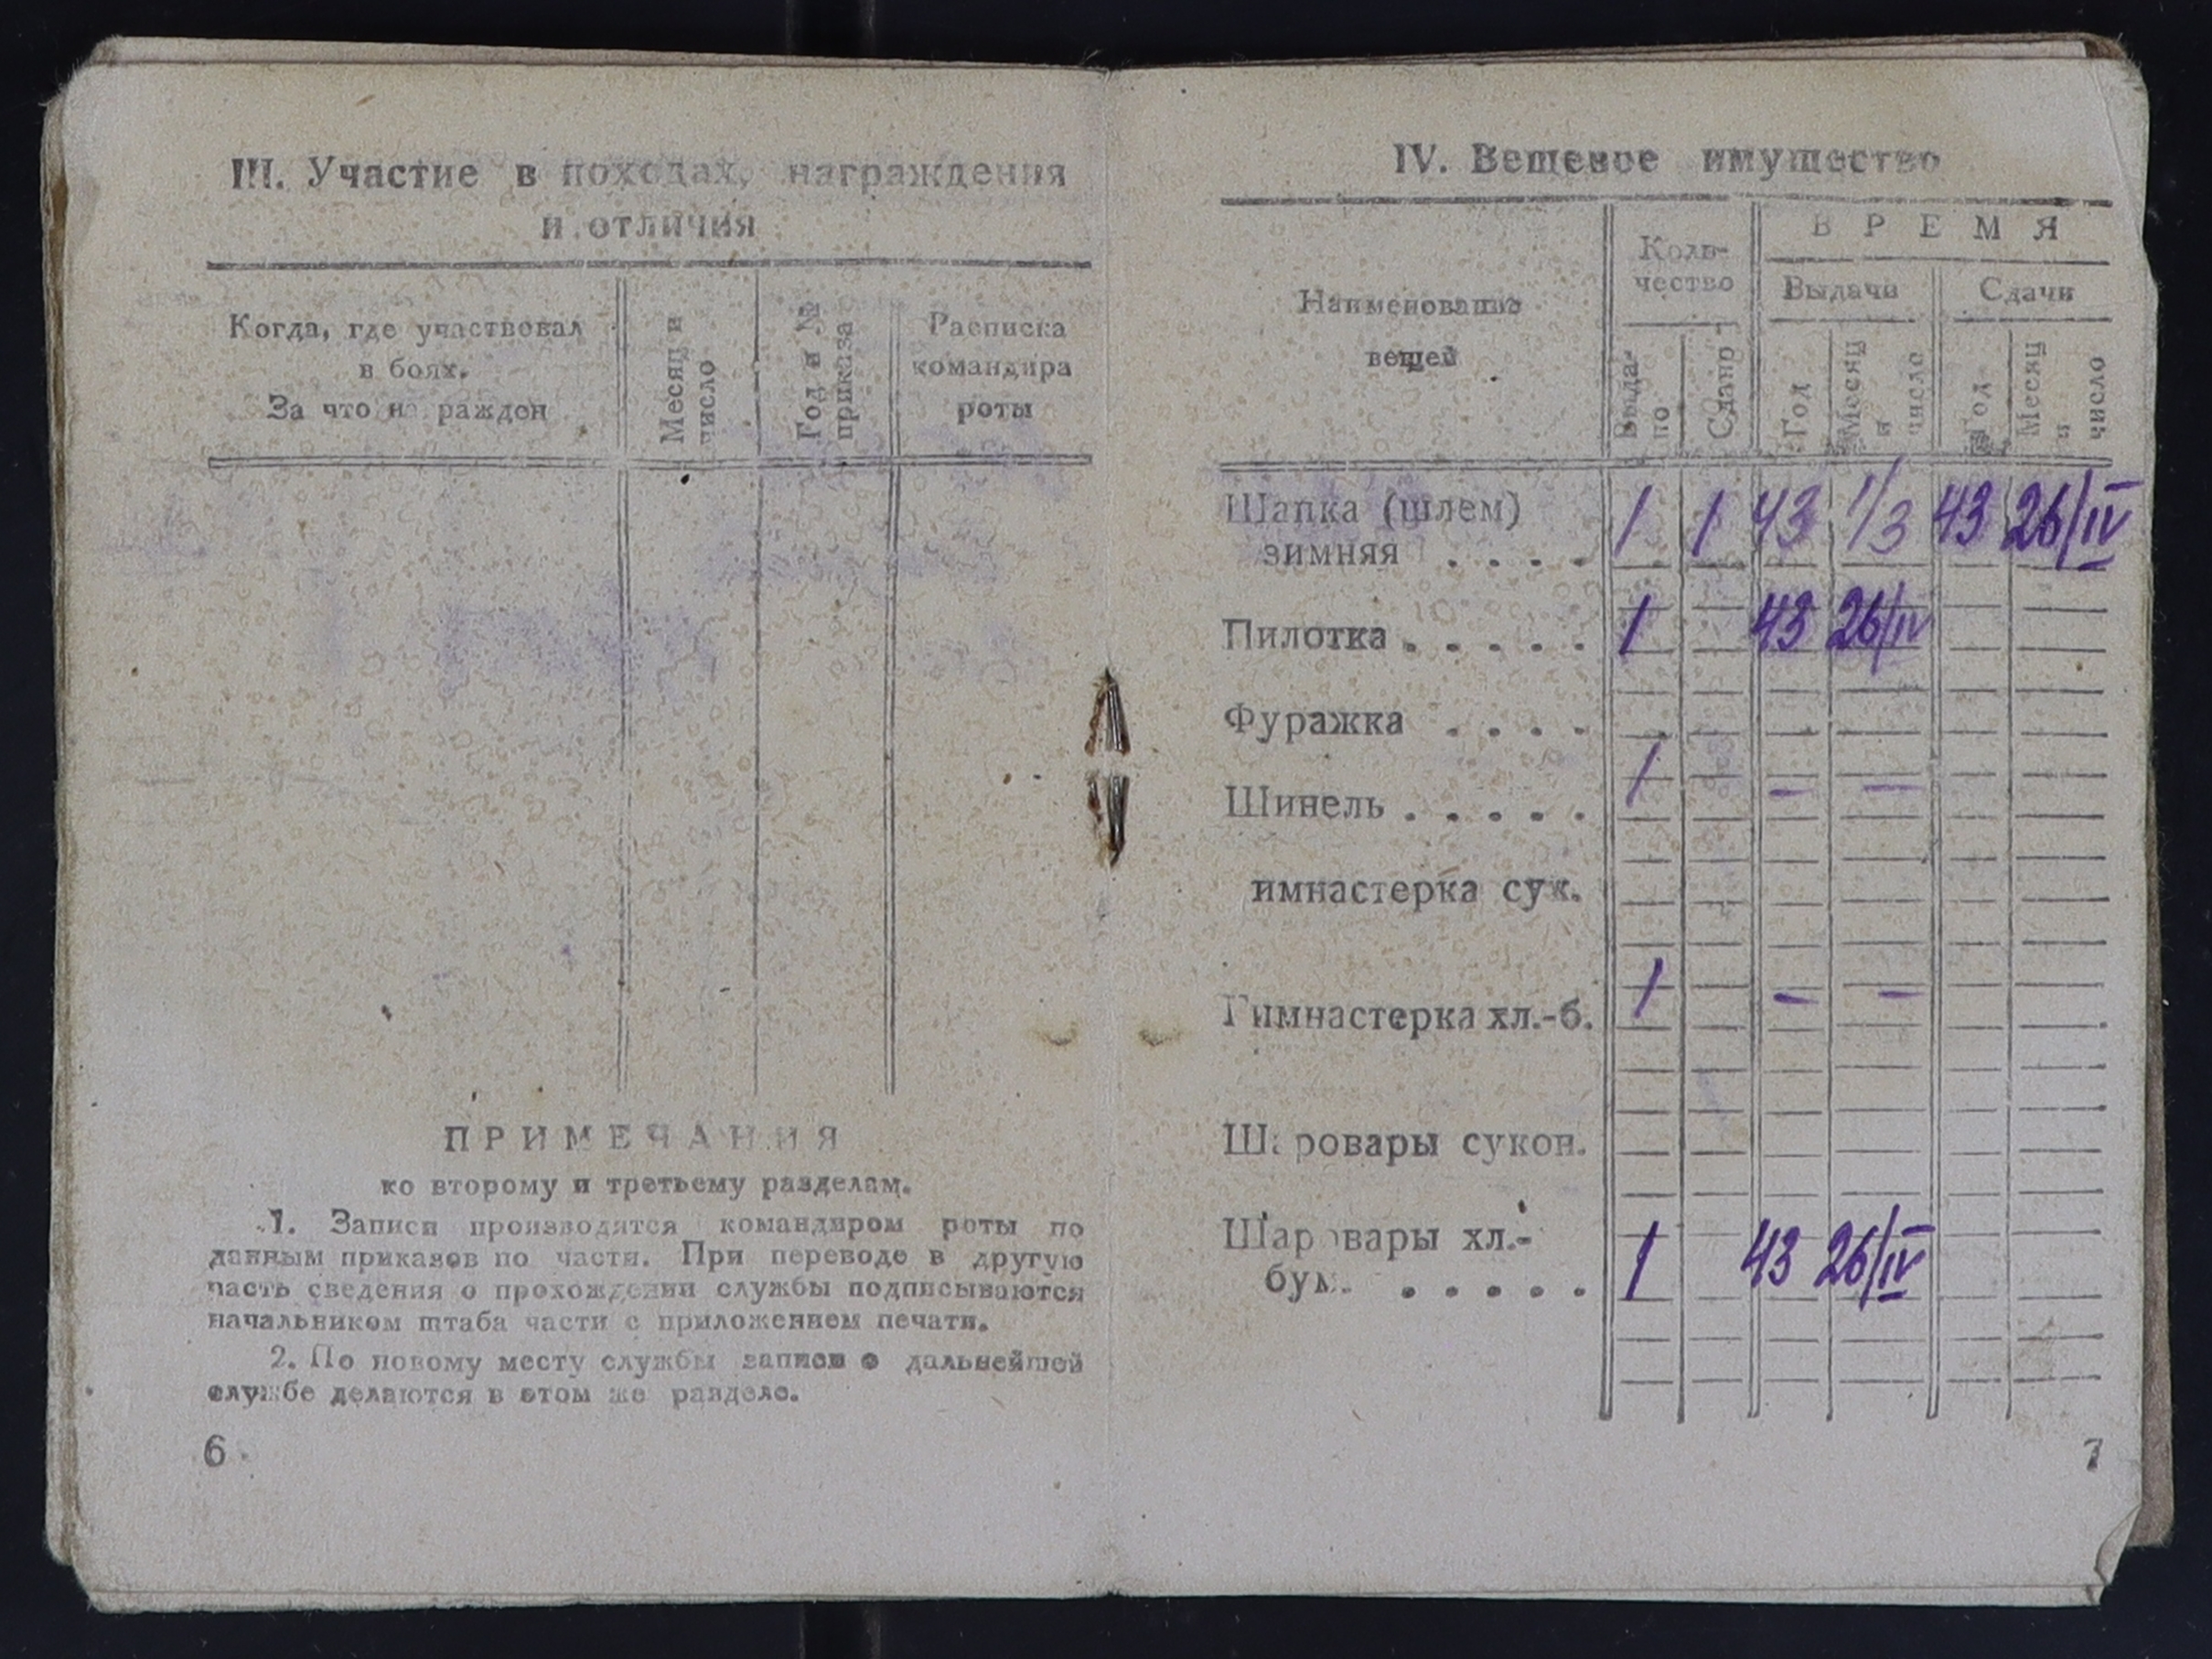 III. Участие в походах, награждения
и отличия
Когда, где участвовал
в боях.
За что на ражден
Месяц и
число
Год и №
приказа
Расписка
командира
роты
ПРИМЕЧАНИЯ
ко второму и третьему разделам.
1. Записи производятся командиром роты по
данным приказов по части. При переводе в другую
часть сведения о прохождении службы подписываются
начальником штаба части с приложением печати.
2. По новому месту службы записи о дальнейшей
службе делаются в этом же разделе.
6
IV. Вещевое имущество
Наименование
вещей
Коли-
чество
ВРЕМЯ
Выдачи
Сдачи
Выда-
но
Сдано
Год
Месяц
и
число
Год
Месяц
и
число
Шапка (шлем)
зимняя . . . . 1 1 43 1/3 43 26/IV
Пилотка . . . . . 1 43 26/IV
Фуражка . . . .
Шинель . . . . . 1 — —
имнастерка сук.
Гимнастерка хл.-б. 1 — —
Ш ровары сукон.
Шар вары хл.-
бум. . . . . . 1 43 26/IV
7